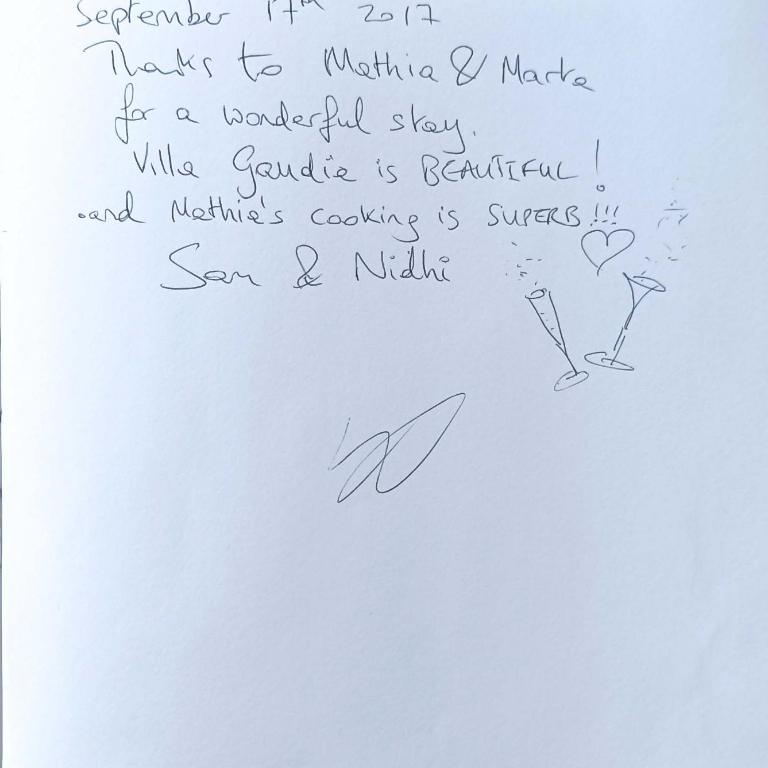 September 17th 2017
Thanks to Mathia & Marta
for a wonderful stay.
Villa Gaudia is BEAUTIFUL!
and Mathia's cooking is SUPERB!!!
Sam & Nidhi